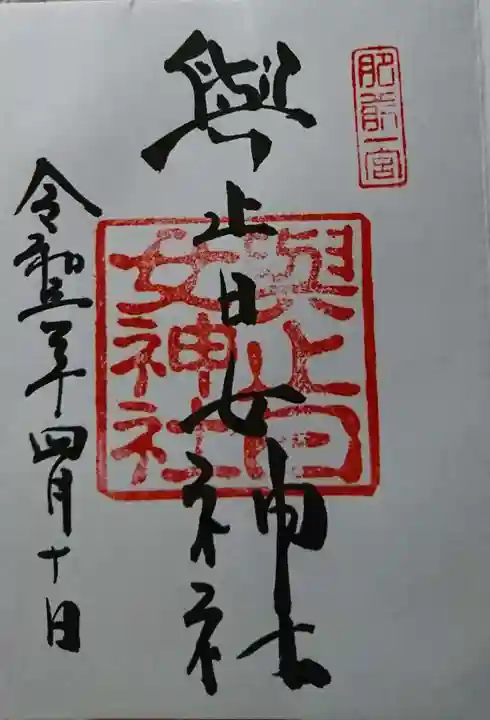 肥前一宮
與止日女神社
與止日
女神社
令和五年四月十日